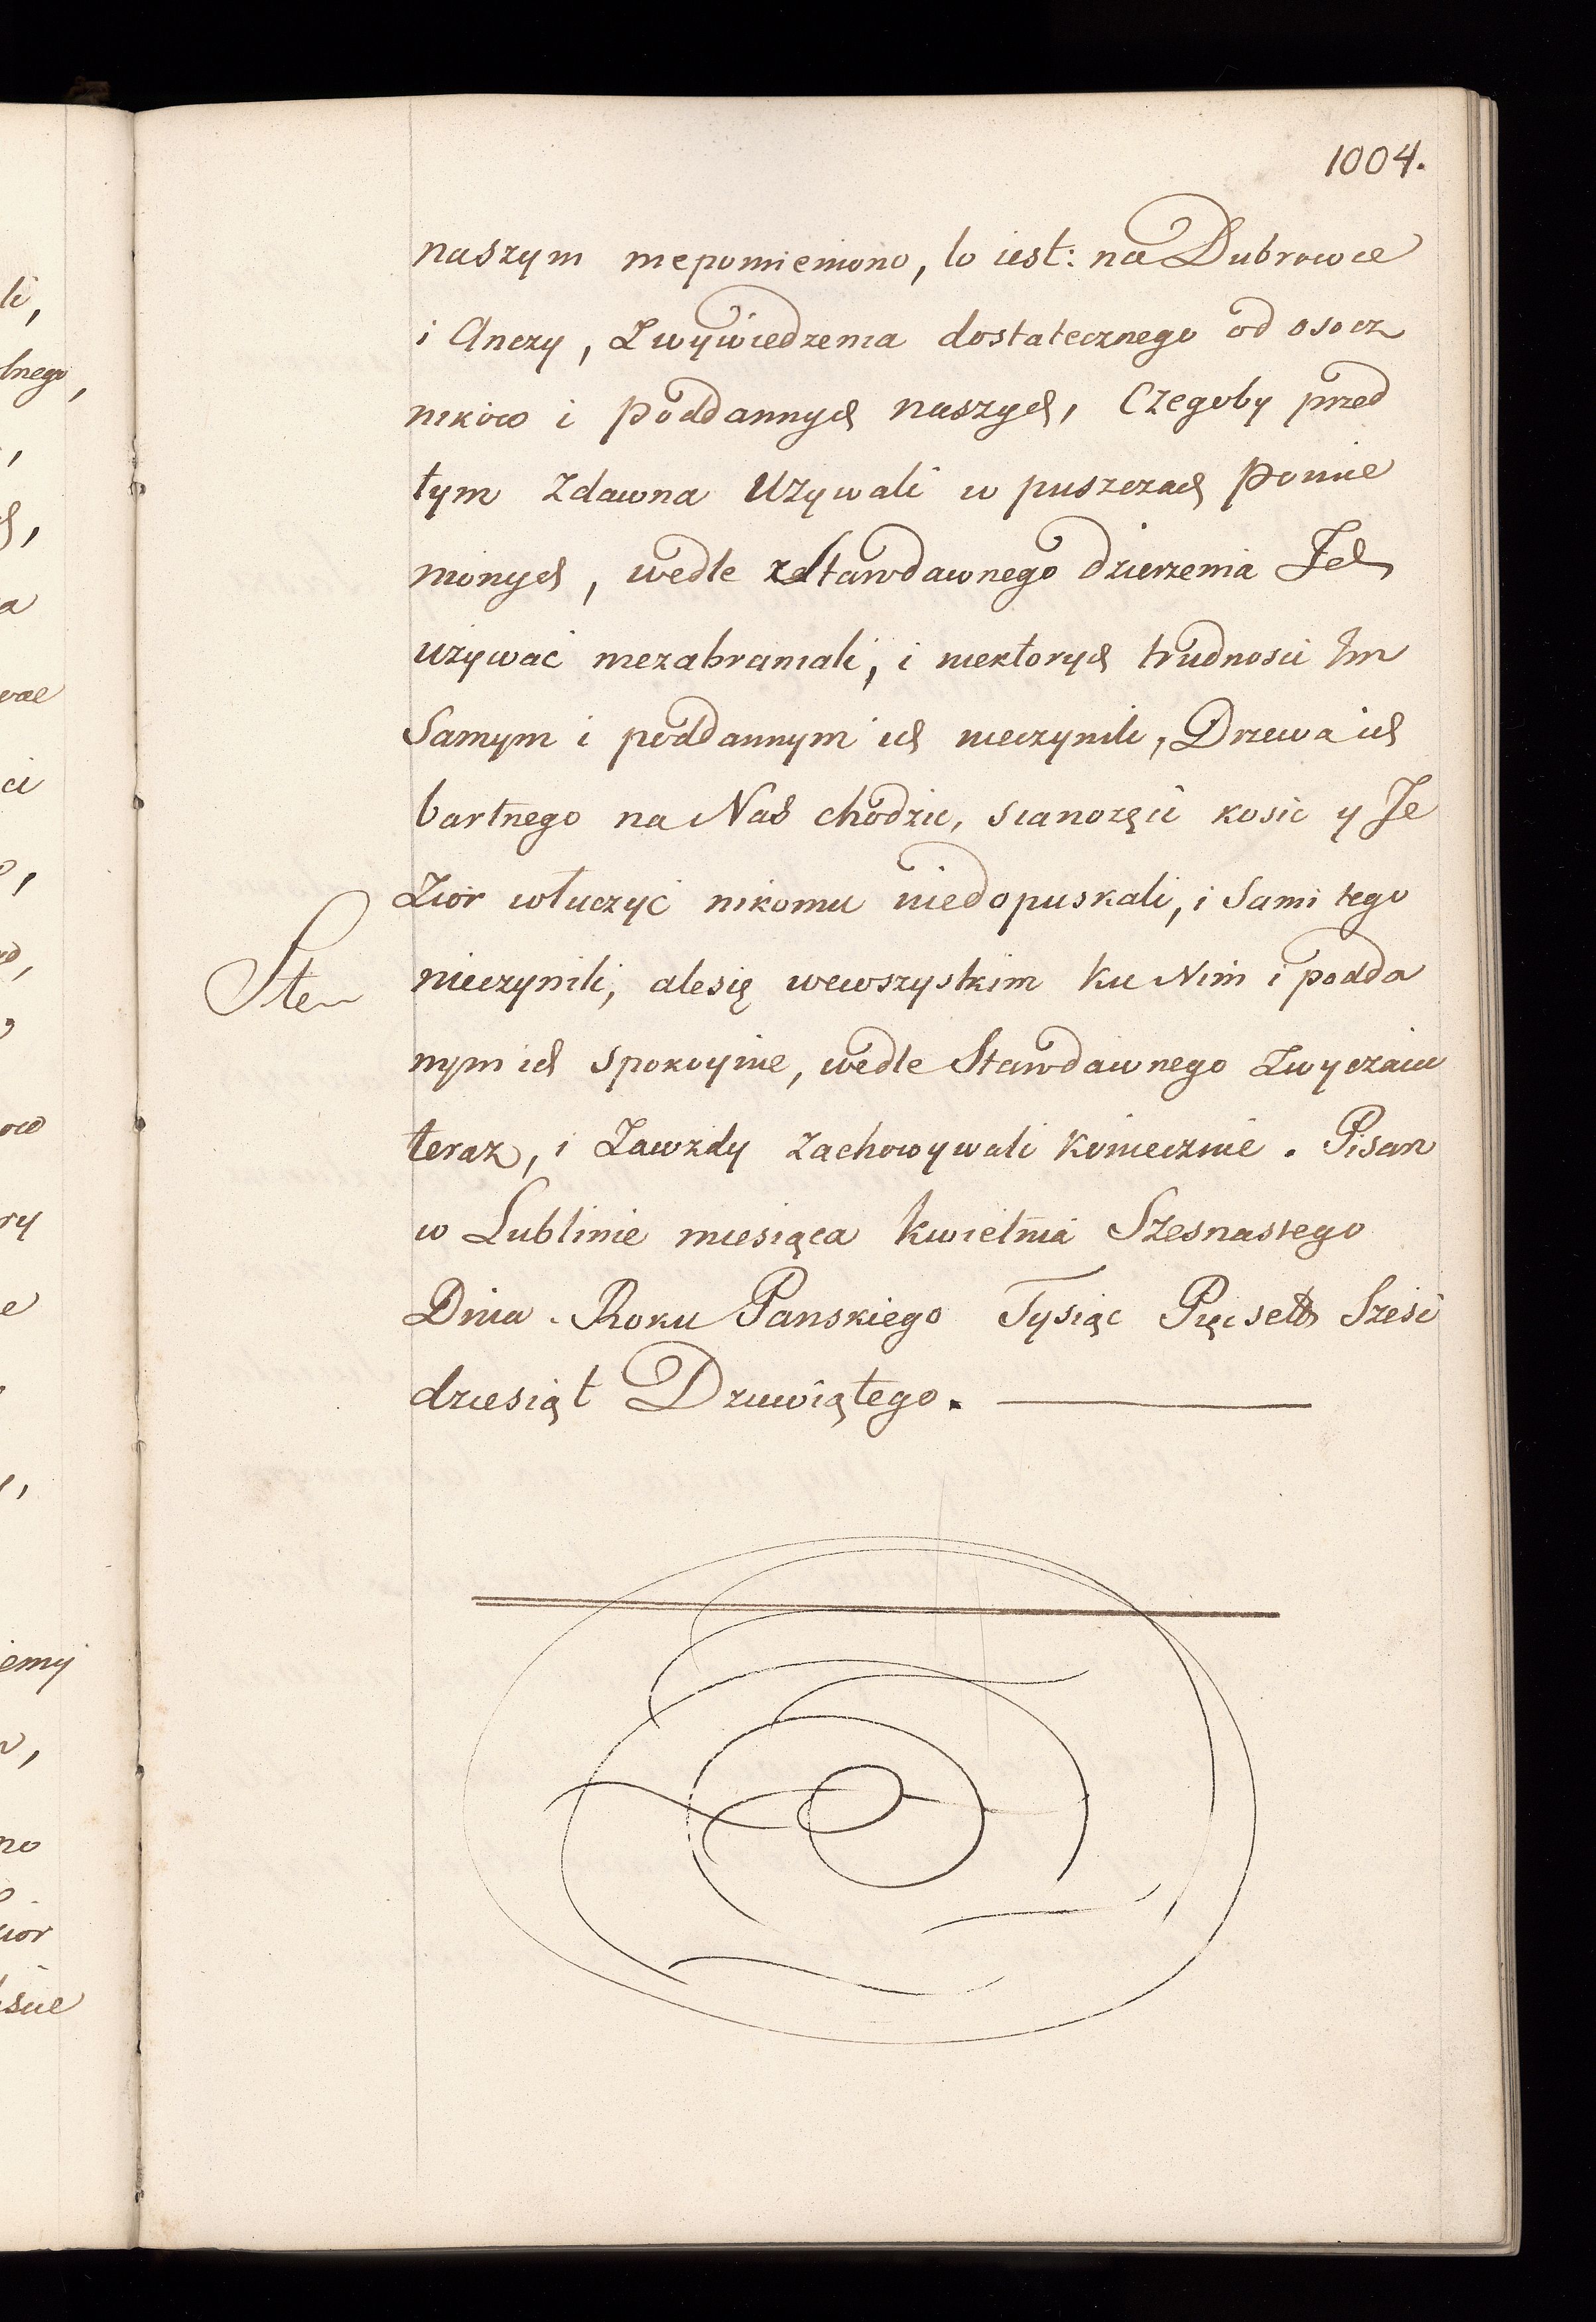 1004.
naszym niepomieniono, to iest: na Dubrowce
i Anczy, Z wywiedzenia dostatecznego od osocz
ników i poddannych naszych, Czegoby przed
tym Zdawna Używali w puszczach Pomie
nionych, wedle zdtawdawnego dzierżenia Ich
używać niezabraniali, i niektorych trudnosci Im
Samym i poddannym ich nieczynili, Drzewa ich
bartnego na Nas chodzić, sianożęci kosic y Je
Zior włuczyć nikomu niedopuskali, i Sami tego
nieczynili, alesię wewszystkim ku Nim i podda
nym ich spokoynie, wedle Stawdawnego Zwyczaiu
teraz, i Zawżdy zachowywali koniecznie. Pisan
w Lublinie miesiąca kwietnia Szesnastego
Dnia. Roku Panskiego Tysiąc Pięcset Szesc
dziesiąt Dziewiątego.
li,
lnego,
a
ci
ow
ry
e
iemy
no
ior